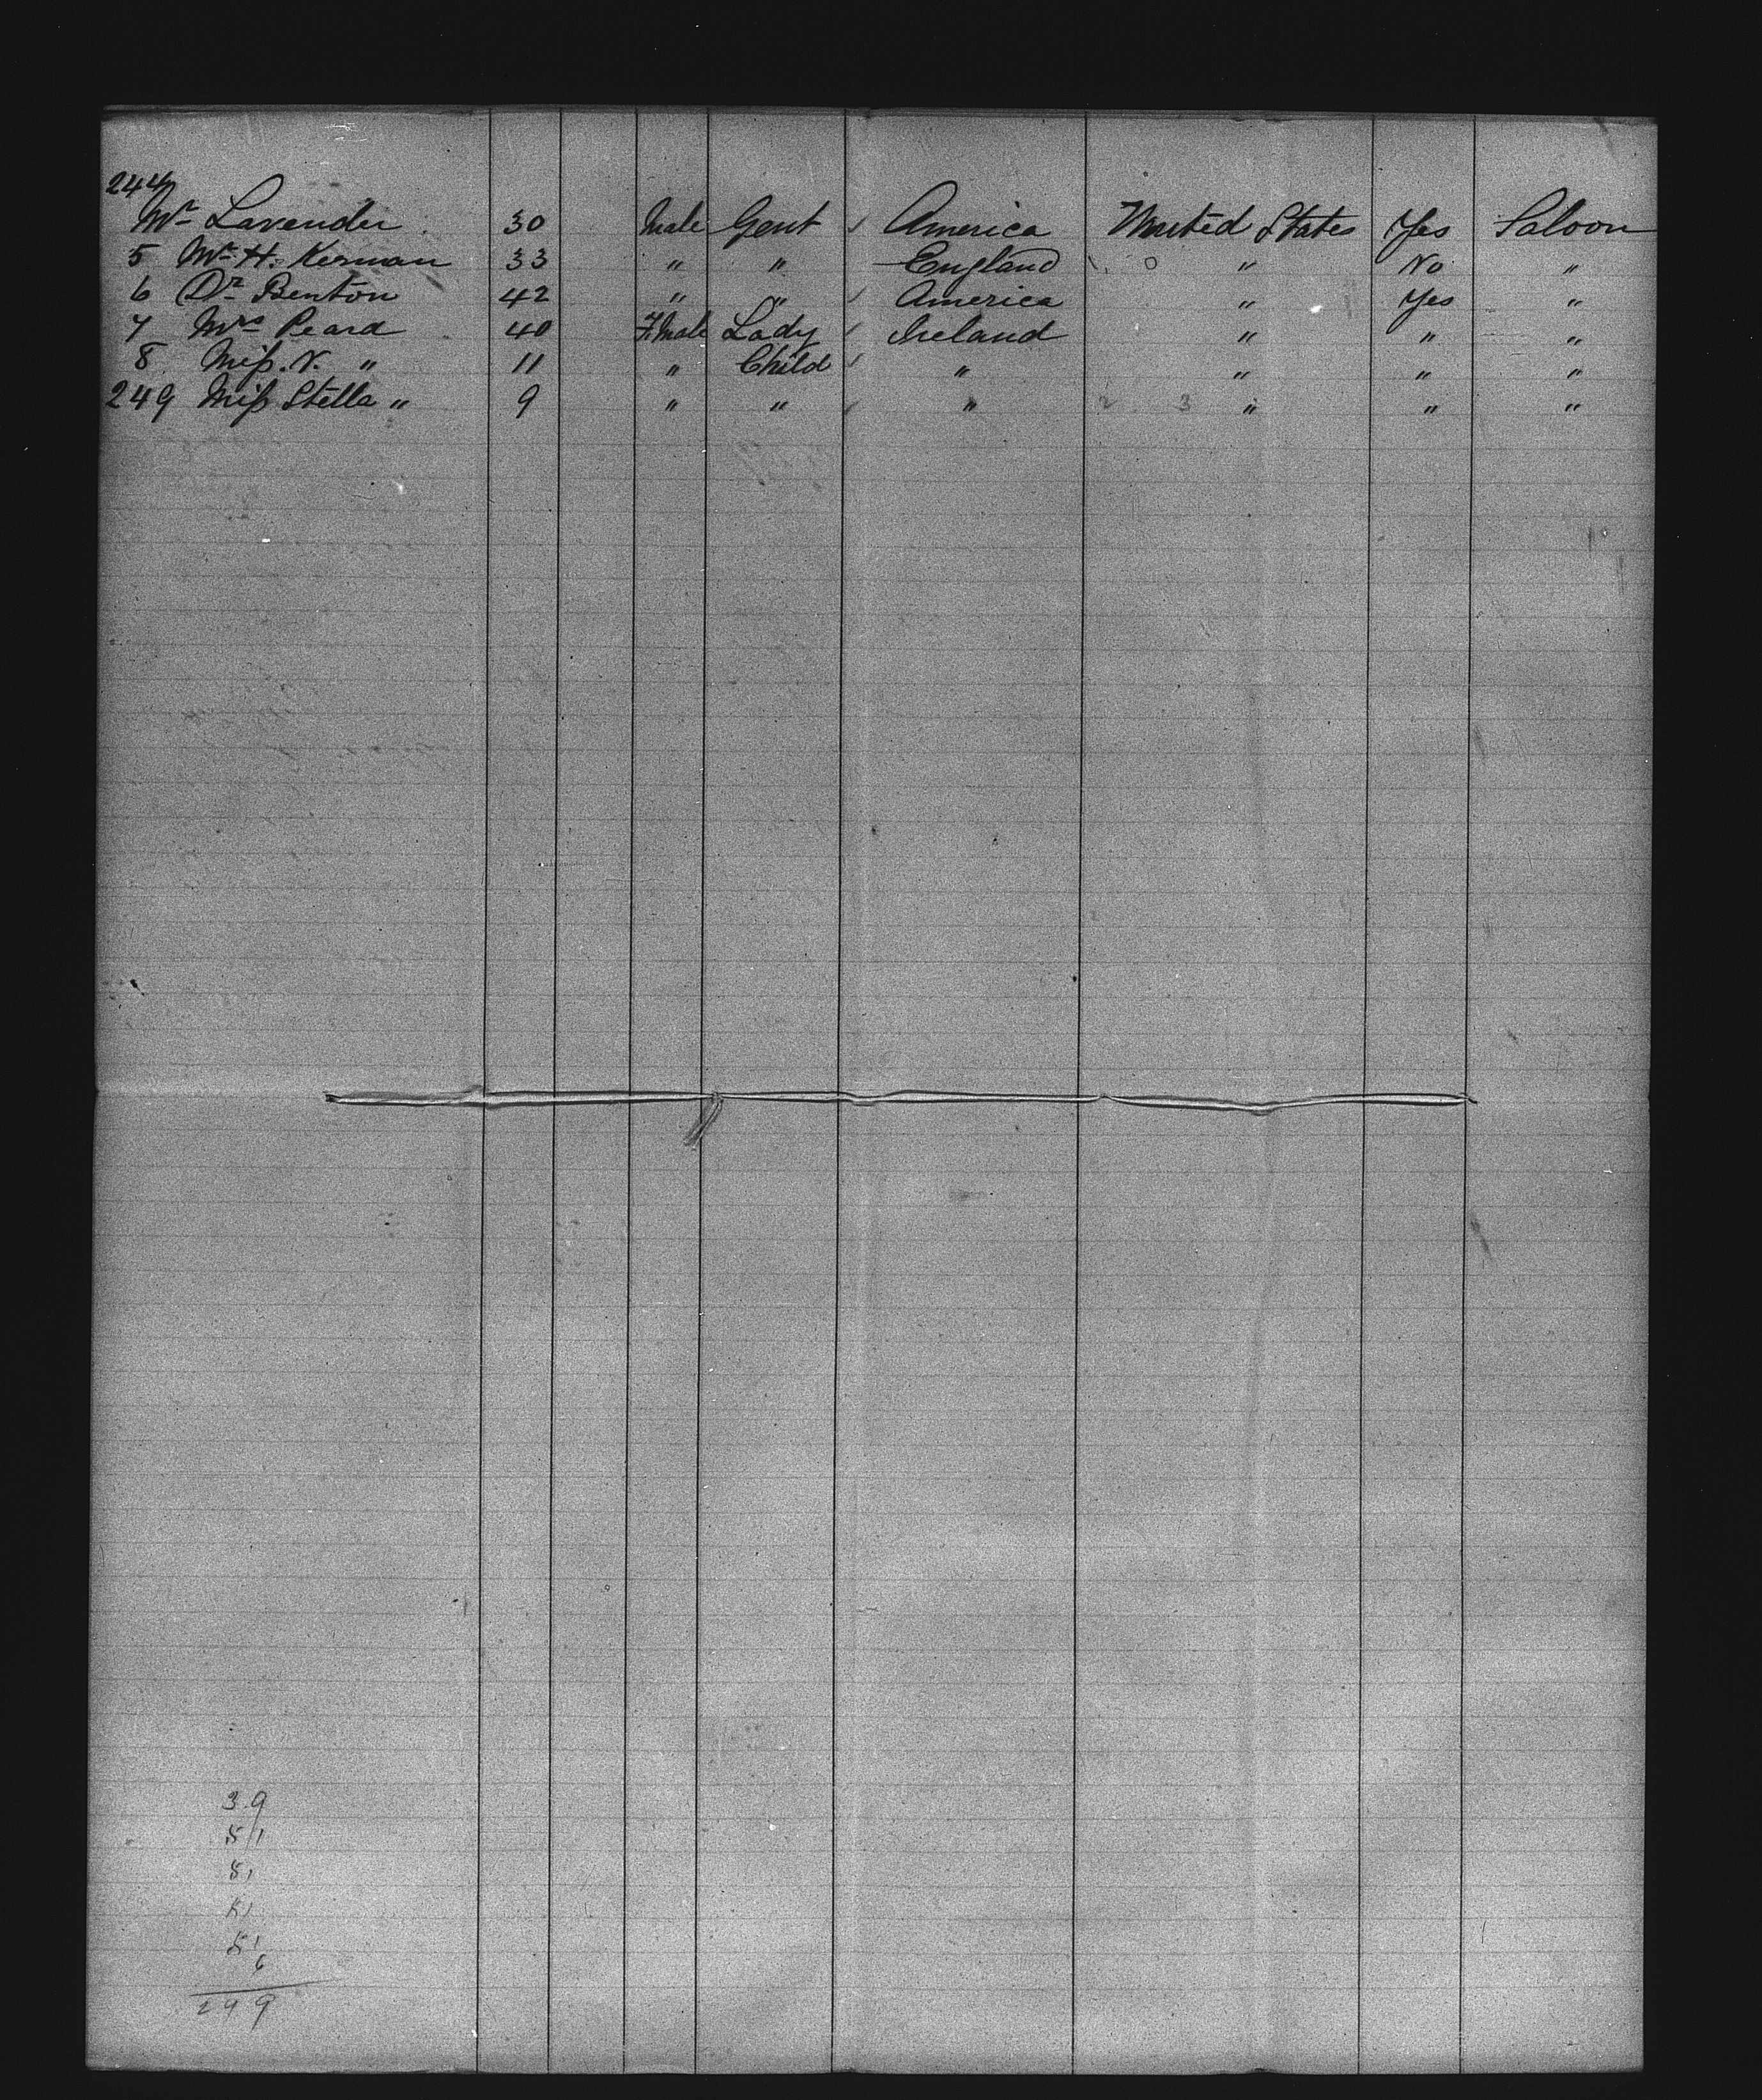 244
Mr Lavender 30 Male Gent America United States Yes Saloon
5 Mr H. Kernan 33 " " England 1. 0 " No "
6 Dr Benton 42 " " America " Yes "
7 Mrs Peard 40 F.Male Lady Ireland " " "
8 Miſs. N. " 11 " Child " " " "
249 Miſs Stella " 9 " " " 2 3 " " "
39
51
51
51
51
6
249